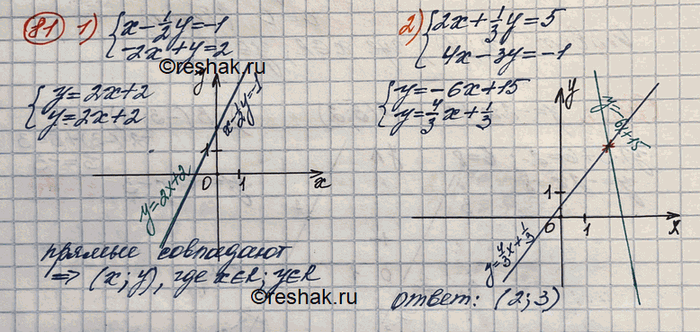 81 1) { x - 1/2 y = -1
-2x + y = 2
©reshak.ru
{ y = 2x + 2
y = 2x + 2
y
x - 1/2 y = -1
1
0 1 x
y = 2x + 2
прямые совпадают
⇒ (x; y), где x∈R; y∈R
©reshak.ru
2) { 2x + 1/3 y = 5
4x - 3y = -1
{ y = -6x + 15
y = 4/3 x + 1/3
y
y = -6x + 15
1
0 1 x
y = 4/3 x + 1/3
ответ: (2; 3)